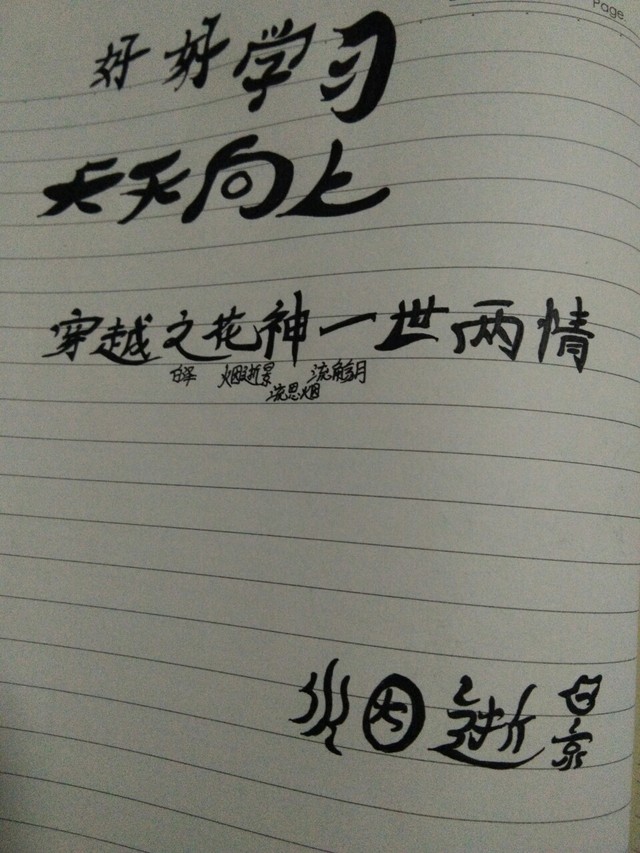 Page
好好学习
天天向上
穿越之花神一世两情
白泽 烟逝景 流觞月
流思烟
烟逝景